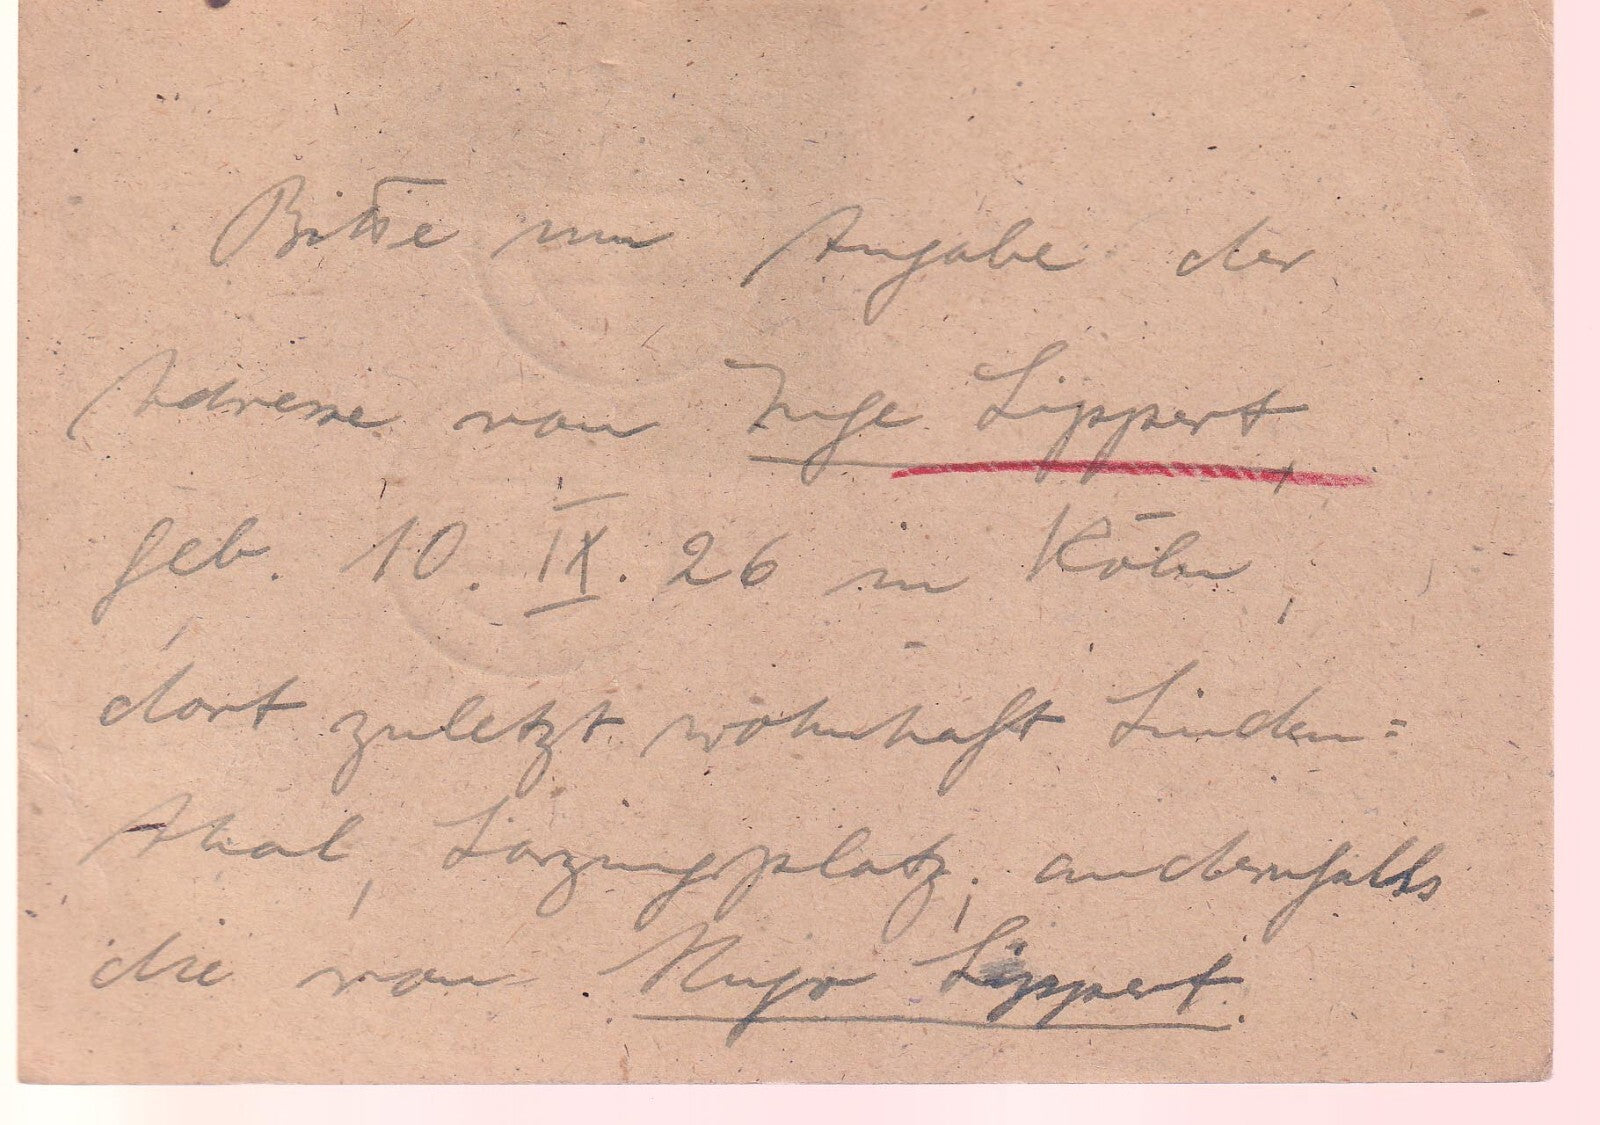 Bitte um Angabe der
Adresse von Inge Lippert,
geb. 10. IX. 26 in Köln,
dort zuletzt wohnhaft Linden=
thal, Lorzingplatz, andernfalls
die von Hugo Lippert.